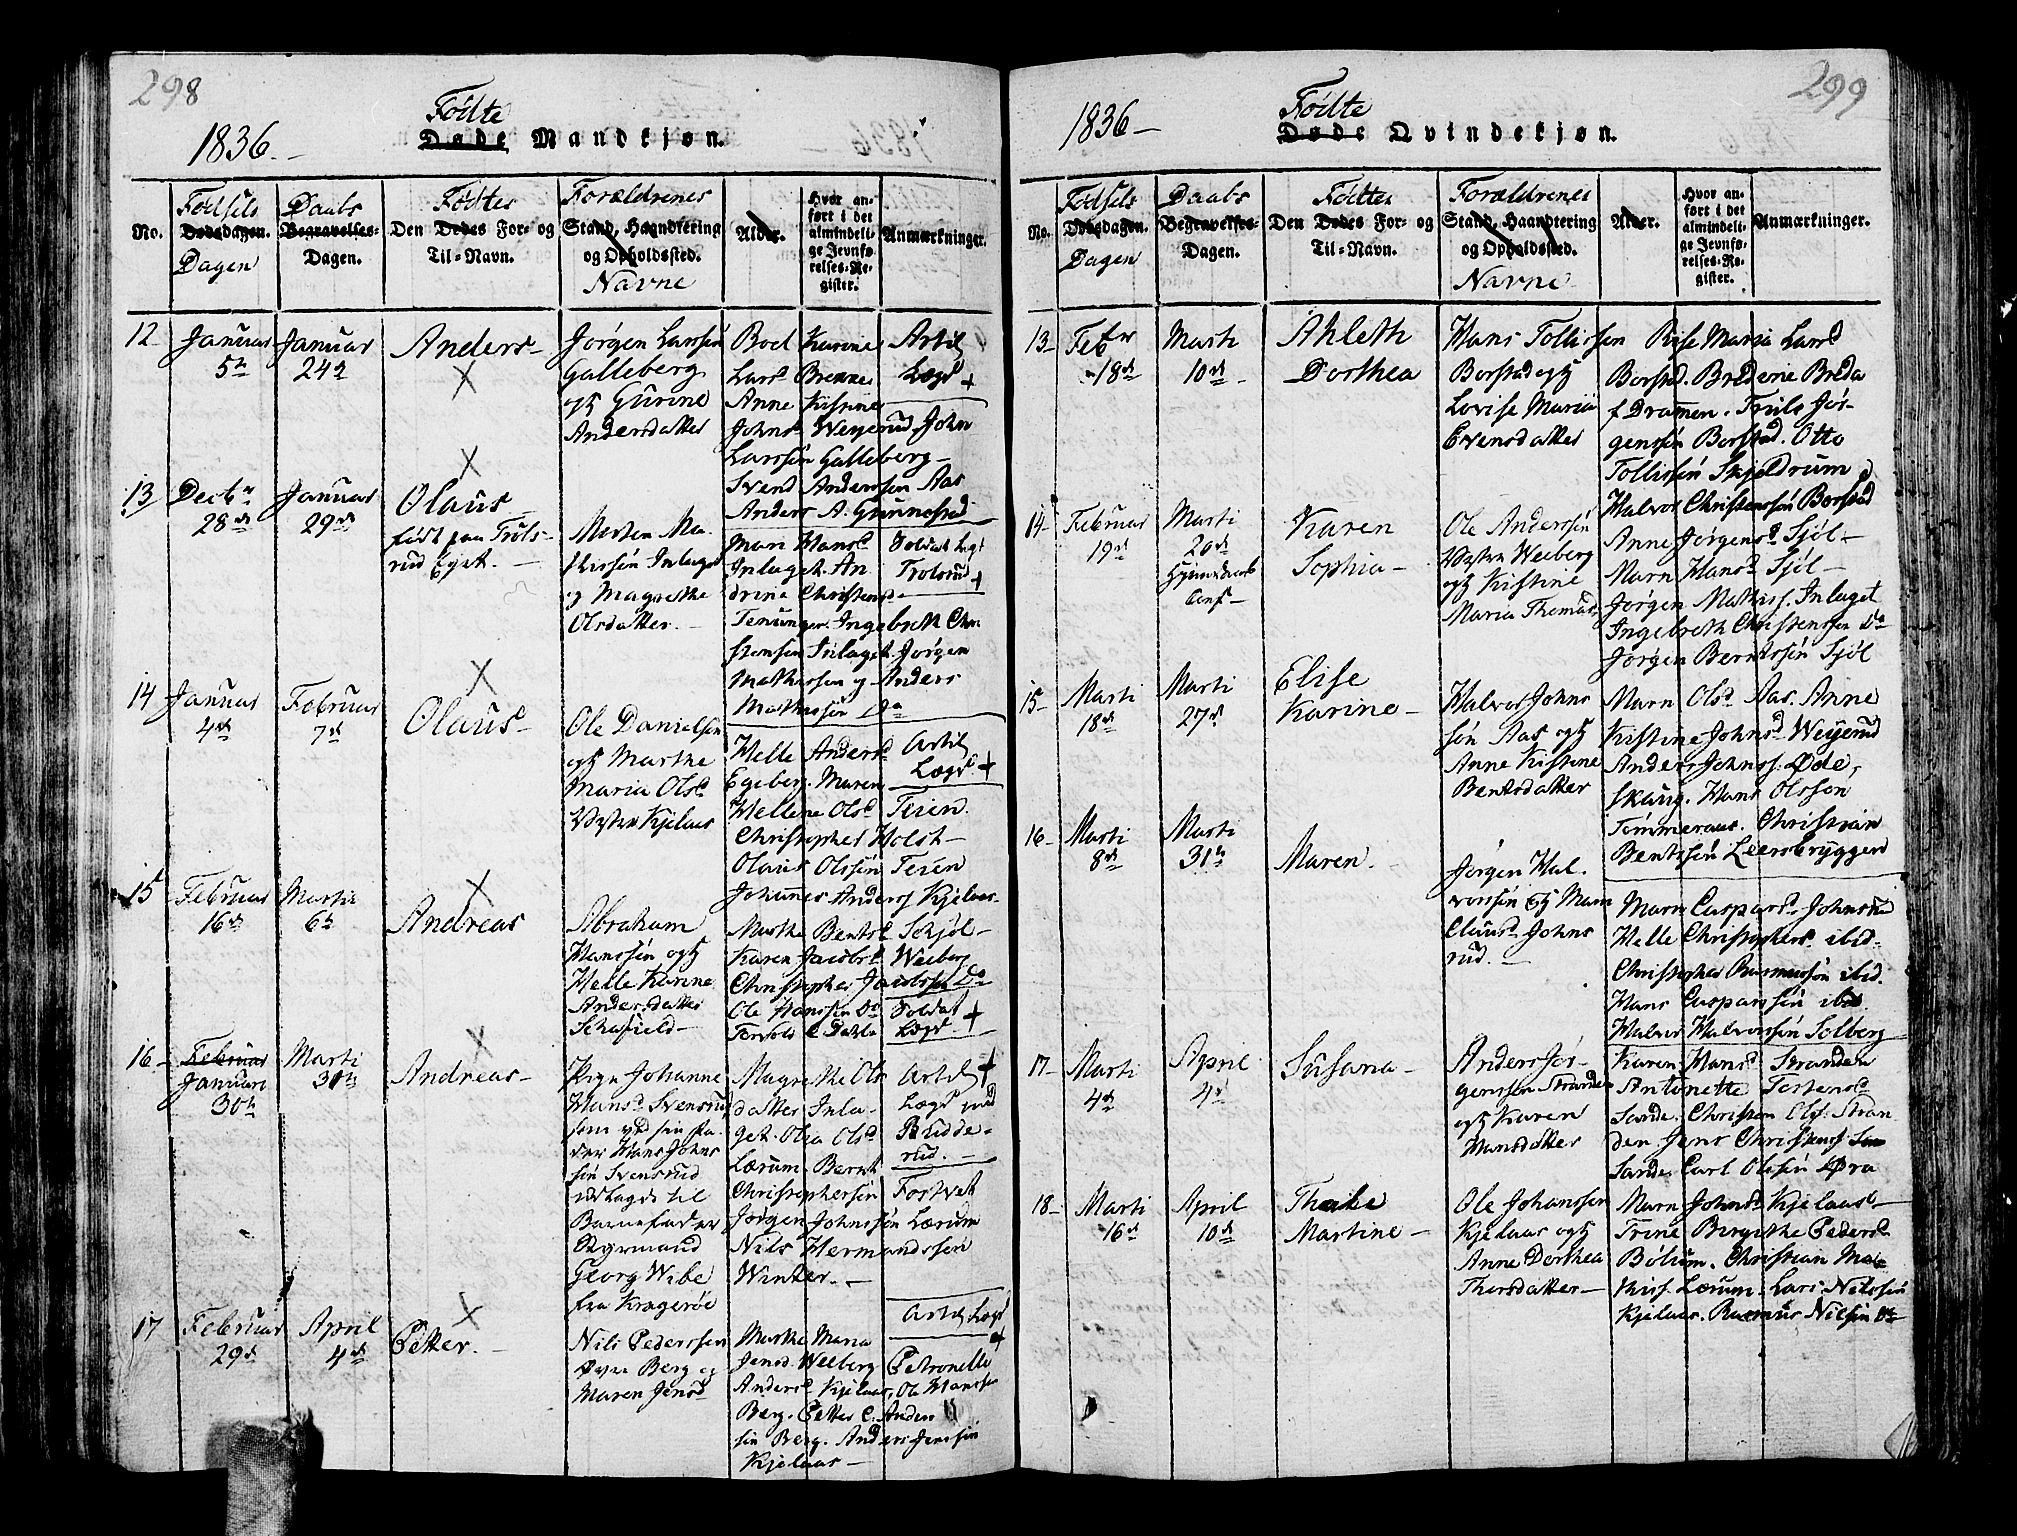 298
1836.-
Fødte
Døde Mandkjøn.
No.
Fødsels
Dødsdagen.
Dagen
Daabs
Begravelses-
Dagen.
Fødtes
Den Dødes For- og
Til-Navn.
Forældrenes
Stand, Haandtering
og Opholdssted.
Navne
Alder.
Hvor an-
ført i det
almindeli-
ge Jevnfø-
relses-Re-
gister.
Anmærkninger.
12
Januar
5te
Januar
24de
Anders-
Jørgen Larssen
Galleberg
og Gurine
Andersdatter
Boel Karine
Larsd Brekke
Anne Kistine
Johnsd Weyerud John
Larssøn Galleberg-
Svend Anderssen Aas
Anders A. Gunnestad
Artil
Lægd +
13
Decbr
28de
Januar
29de
Olaus
født paa Trols-
rud Ejet.-
Morten Ma-
thissøn Inlaget
og Magrethe
Olsdatter.-
Mari Hansd
Inlaget. An-
drine Christensd-
Ingebreth Chri-
stensen Inlaget Jørgen
Mathissen og Anders
Mathissøn Do
Soldat Lægd
Trolsrud +
14
Januar
4de
Februar
7de
Olaus-
Ole Danielsen
og Marthe
Maria Olsd
Vestre Kjelaas
Helle Andersd
Egeberg. Maren
Hellene Olsd Teien.
Christopher Holst-
Olaus Olssøn Teien
Johannes Anderss Kjelaas-
Artil
Lægd. +
15
Februar
16de
Marti
6te
Andreas
Abraham
Hanssøn og
Helle Karine
Andersdatter
Marthe Bentsd
Karen Jacobsd Weeberg
Christopher Jacobssen Do
Ole Hanssen Do
Soldat
Lægd.- +
16-
Februar
Januari
30te
Marti
31te
Andreas-
Pigen Johanne
Hansd Svensrud
som ved sin Fa-
der Hans Johns
søn Svensrud
udlagde til
Barnefader
Styrmand
Georg Wibe
fra Kragerøe
Magrethe Ols
datter Inla-
get. Olia Olsd
Lærum. Bernt
Christophersøn
Jørgen Johnssøn Lærum
Nils Hermandssen
Winter.-
Artil +
Lægd
Budde-
rud.-
17
Februar
29de
April
4de
Petter.-
Nils Pederssen
Øvre Berg og
Maren Jensd
Marthe Maria
Jensd. Weeberg
Andersd Kjelaas, Ole Hanssen
Berg. Petter C. Anders
søn Berg. Anders Jenssøn
Kjelaas-
Artil Lægd
+
Petronelle
299
1836-
Fødte
Døde Qvindekjøn.
No.
Fødsels
Dødsdagen.
Dagen
Daabs
Begravelses-
Dagen.
Fødtes
Den Dødes For- og
Til-Navn.
Forældrenes
Stand, Haandtering
og Opholdssted.
Navne
Alder.
Hvor an-
ført i det
almindeli-
ge Jevnfø-
relses-Re-
gister.
Anmærkninger.
13-
Febr
18de
Marti
10de-
Ahleth
Dorthea
Hans Tollissen
Borstad og
Lovise Maria
Evensdatter
Maria Larsd
Borstad. Bredine Breda
f Drammen. Truls Jør-
gensøn Borstad. Otto
Tollissøn Skjeldrum
Halvor Christenssøn Borstad
14-
Februar
19de
Marti
20de
Karen
Sophia-
Ole Anderssøn
Vestre Weeberg
og Kistine
Maria Thomasd
Anne Jørgensd Sjøl-
Marn Hansd Sjøl-
Jørgen Mathiss. Inlaget
Ingebreth Christenssen Do
Jørgen Berntssøn Sjøl
15-
Marti
18de
Marti
27de
Elise
Karine-
Halvor Johns
søn Aas og
Anne Kistine
Bentsdatter
Marn Olsd Aas. Anne
Kistine Johnsd Weyerud
Anders Johnss. Øde,
Skaug. Hans Olsson
Tømmeraas. Christian
Bentssøn Leersbryggen
16-
Marti
8de
Marti
31te
Maren.-
Jørgen Hal-
vorssøn og Marn
Clausd Johns
rud.-
Marn Caspersd Johnsrud
Helle Christophersd ibid.
Christopher Rasmussøn ibid.
Hans Casparssøn ibid.
Halvor Halvorssøn Solberg
17-
Marti
4de
April
4de
Susana-
Anders Jør-
genssen Stranden
og Karen
Hansdatter
Karen Hansd Stranden
Antonette Torstensd
Sande. Christen Olss. Stran
den Jens Christenss
Sande. Carl Olssøn Øra
18-
Marti
16de
April
10de
Thale
Martine-
Ole Johanssen
Kjelaas og
Anne Dorthea
Thorsdatter-
Marn Johnsd Kjelaas-
Trine Bergithe Pedersd
Bølum. Christian Ma-
thiss. Lærum. Lars Nilssøn
Kjelaas. Rasmus Nilssøn Do